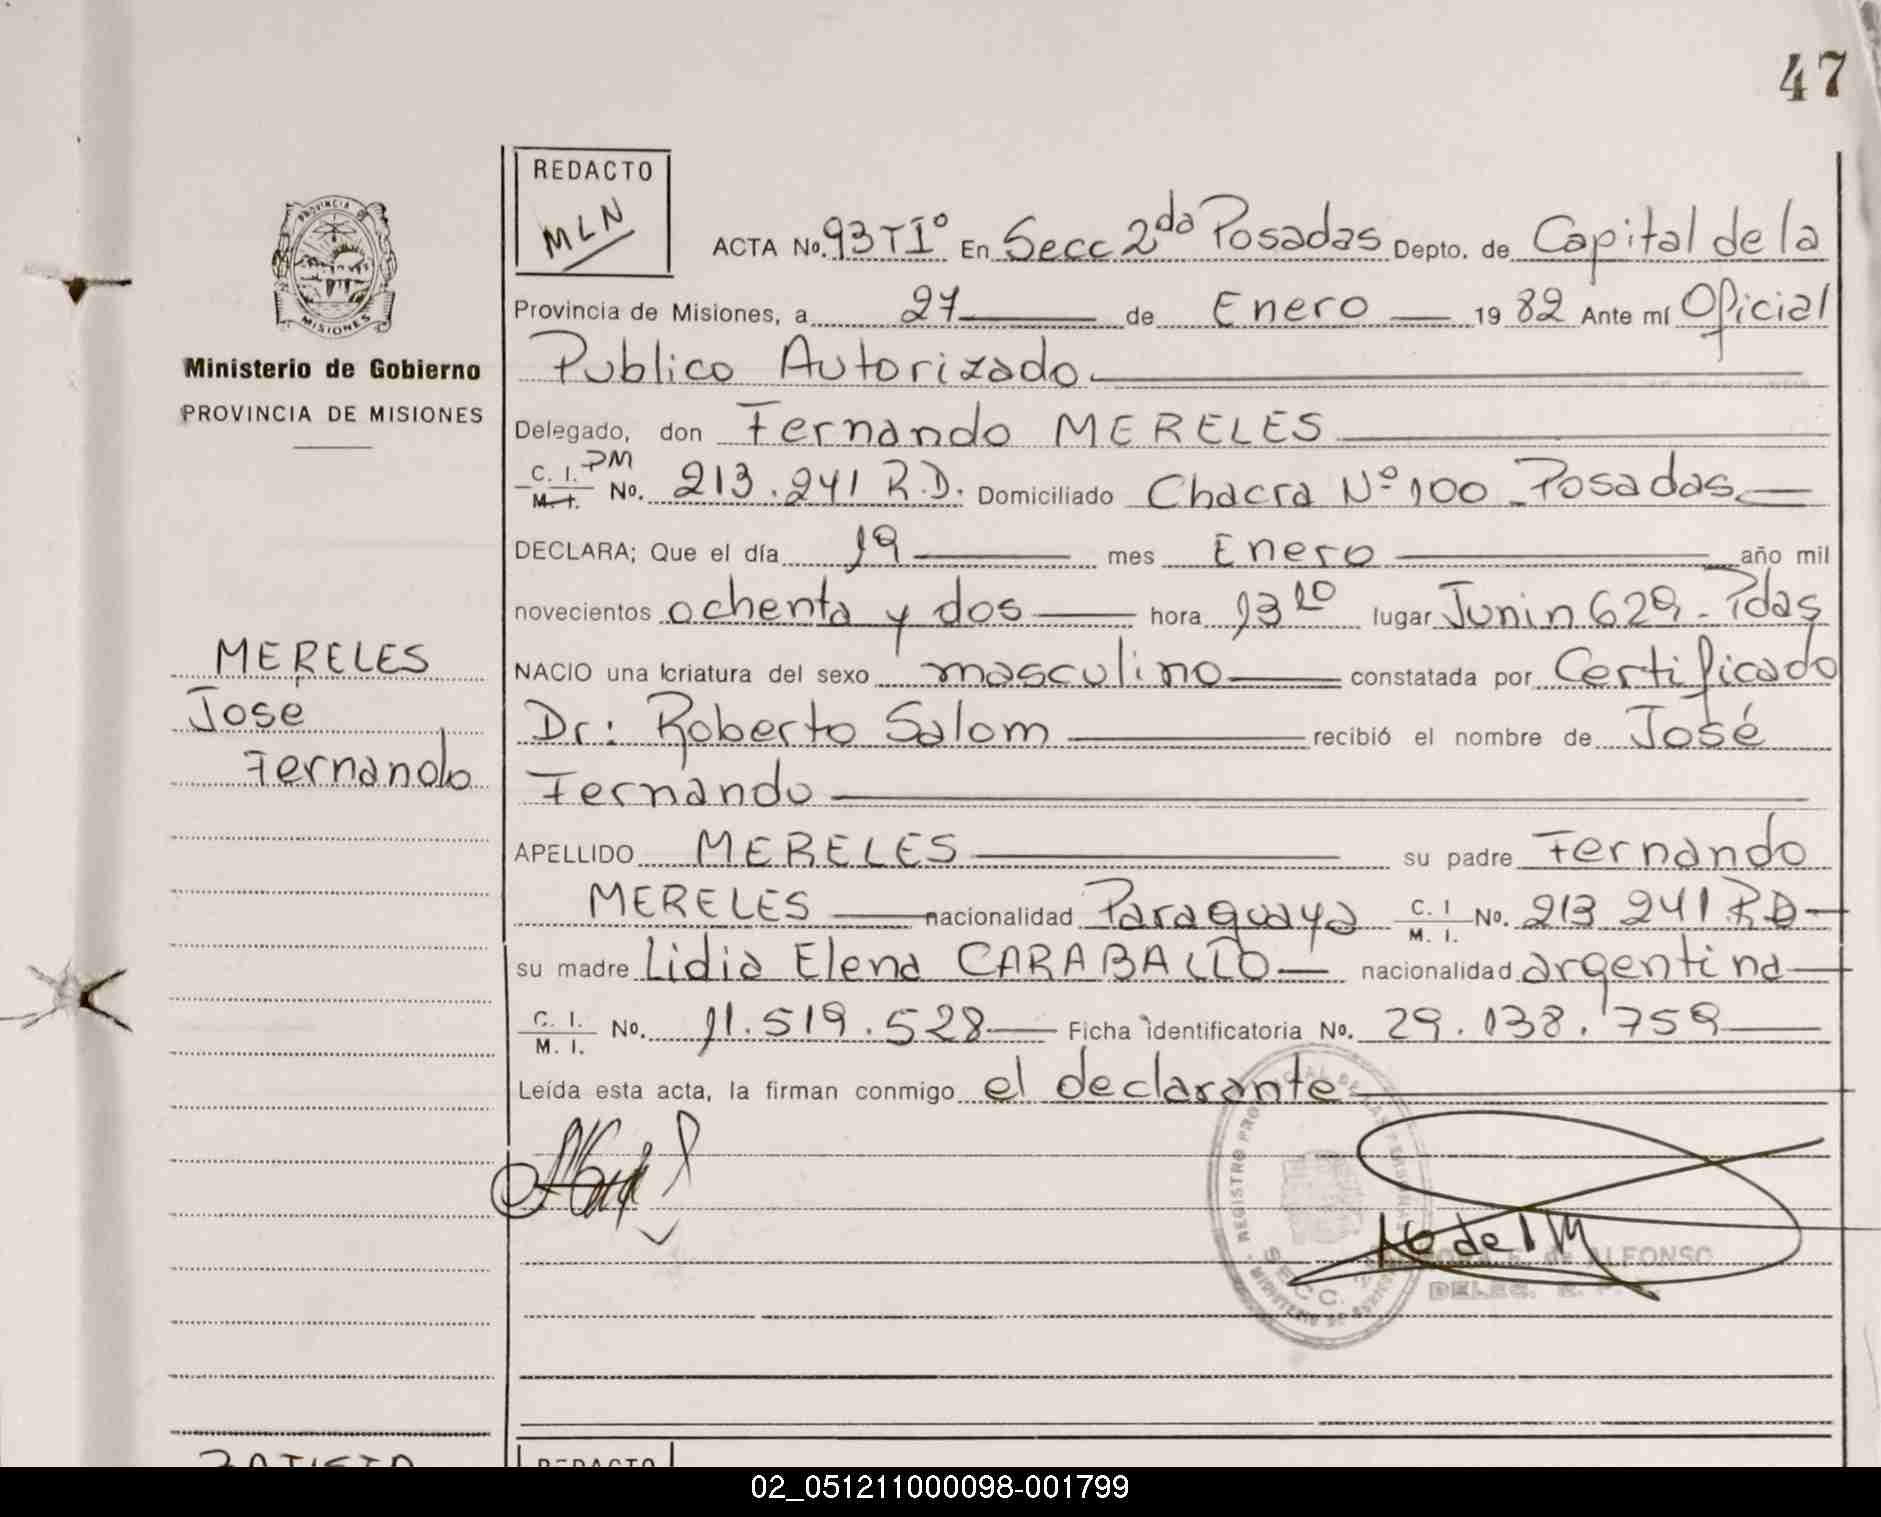 47
REDACTO
MLN
ACTA No. 93 TIº En Secc 2da Posadas Depto. de Capital de la
PROVINCIA DE
MISIONES
Provincia de Misiones, a 27 de Enero 1982 Ante mí Oficial
Ministerio de Gobierno
Publico Autorizado
PROVINCIA DE MISIONES
Delegado, don Fernando MERELES
C. I. PM
M. I. No. 213.241 R.D. Domiciliado Chacra Nº 100 - Posadas
DECLARA; Que el día 19 mes Enero año mil
novecientos ochenta y dos hora 13 10 lugar Junin 629 - Pdas
MERELES
José
Fernando
NACIO una criatura del sexo masculino constatada por Certificado
Dr: Roberto Salom recibió el nombre de José
Fernando
APELLIDO MERELES su padre Fernando
MERELES nacionalidad Paraguaya C. I M. I. No. 213 241 RD
su madre Lidia Elena CARABALLO nacionalidad argentina
C. I. M. I. No. 11.519.528 Ficha identificatoria No. 29.138.759
Leída esta acta, la firman conmigo el declarante
REGISTRO
SECC.
E. de ALFONSO
DELEG.
REDACTO
02_051211000098-001799